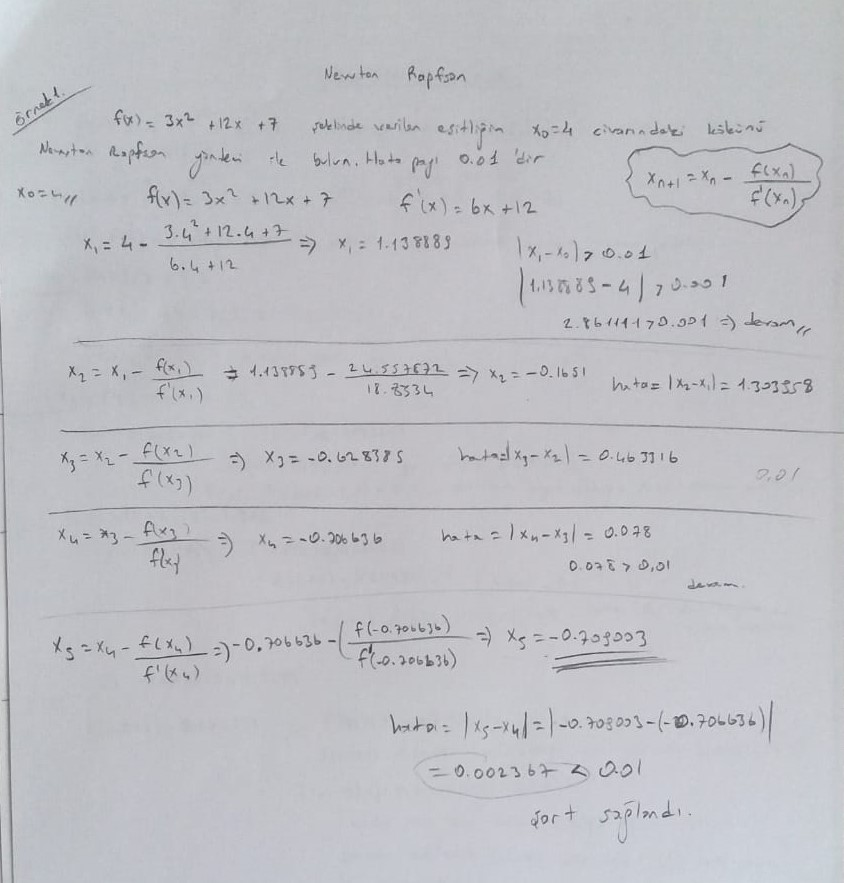 Newton Rapfson
örnek1.
f(x) = 3x² + 12x + 7 şeklinde verilen eşitliğin x₀=4 civarındaki kökünü
Newton Rapfson yöntemi ile bulun. Hata payı 0.01 'dir
xₙ₊₁ = xₙ - f(xₙ) / f'(xₙ)
x₀=4,, f(x) = 3x² + 12x + 7 f'(x) = 6x + 12
x₁ = 4 - (3.4² + 12.4 + 7) / (6.4 + 12) => x₁ = 1.138889
|x₁ - x₀| > 0.01
|1.138889 - 4| > 0.001
2.861111 > 0.001 => devam,,
x₂ = x₁ - f(x₁) / f'(x₁) => 1.138889 - 24.557672 / 18.8334 => x₂ = -0.1651 hata = |x₂-x₁| = 1.303958
x₃ = x₂ - f(x₂) / f'(x₃) => x₃ = -0.628385 hata=|x₃-x₂| = 0.463316
0.01
x₄ = x₃ - f(x₃) / f(x₃) => x₄ = -0.706636 hata = |x₄-x₃| = 0.078
0.078 > 0,01
devam.
x₅ = x₄ - f(x₄) / f'(x₄) => -0.706636 - (f(-0.706636) / f'(-0.706636)) => x₅ = -0.709003
hata = |x₅-x₄| = |-0.709003 - (-0.706636)|
= 0.002367 < 0.01
Şart sağlandı.